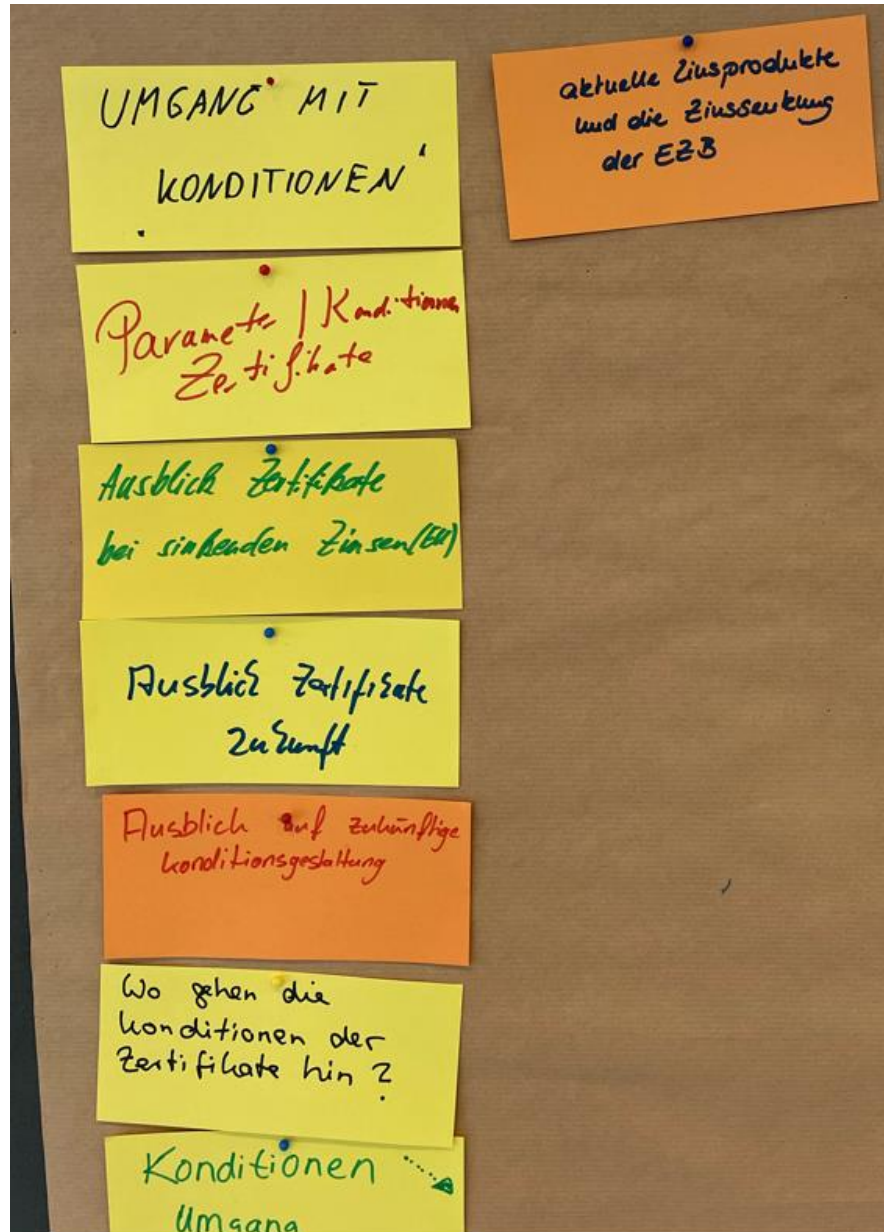 UMGANG MIT
KONDITIONEN
Parameter / Konditionen
Zertifikate
Ausblick Zertifikate
bei sinkenden Zinsen (EU)
Ausblick Zertifikate
Zukunft
Ausblick auf zukünftige
Konditionsgestaltung
Wo gehen die
Konditionen der
Zertifikate hin?
Konditionen
Umgang
aktuelle Zinsprodukte
und die Zinssenkung
der EZB